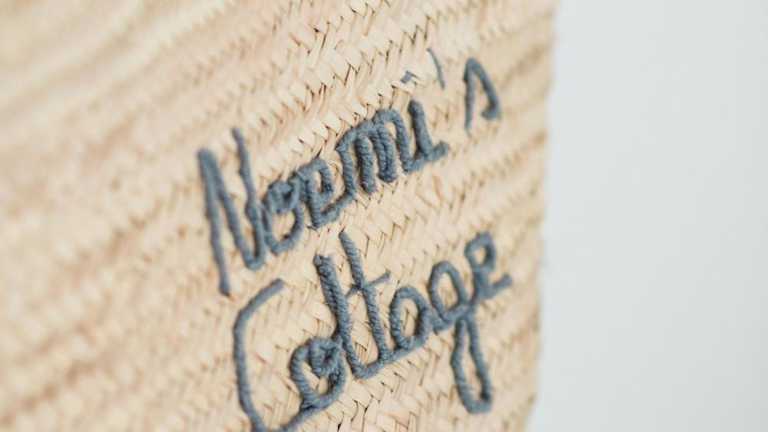 Noemi's
Cottage